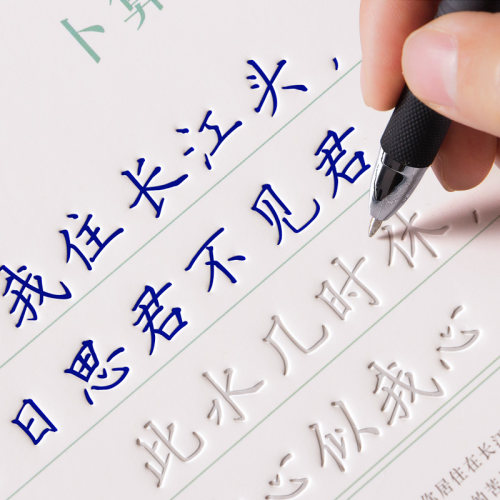 卜算
我住长江头,
日思君不见君
此水几时休,
心似我心
居住在长江